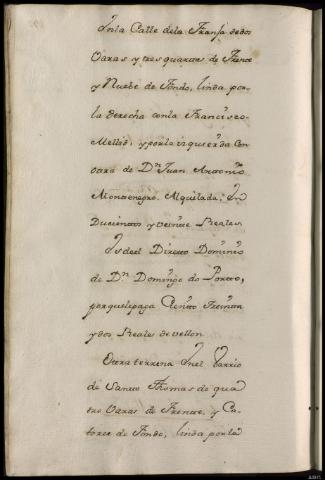 En la Calle dela Franja de dos
Varas y tres quartas de Frente
y Nuebe de Fondo, linda por
la derecha con la Francisco
Mellid, y por la izquierda con
otra de Dn Juan Antonio
Montenegro. Alquilada, En
Ducientos y veinte Reales
Es del Directo Dominio
de Dn Domingo do Porto,
por que le paga Ciento Treinta
y dos Reales de vellon
Otra terrena En el Barrio
de Santo Thomas de qua
tro Varas de Frente, y Ca-
torce de Fondo, linda por la